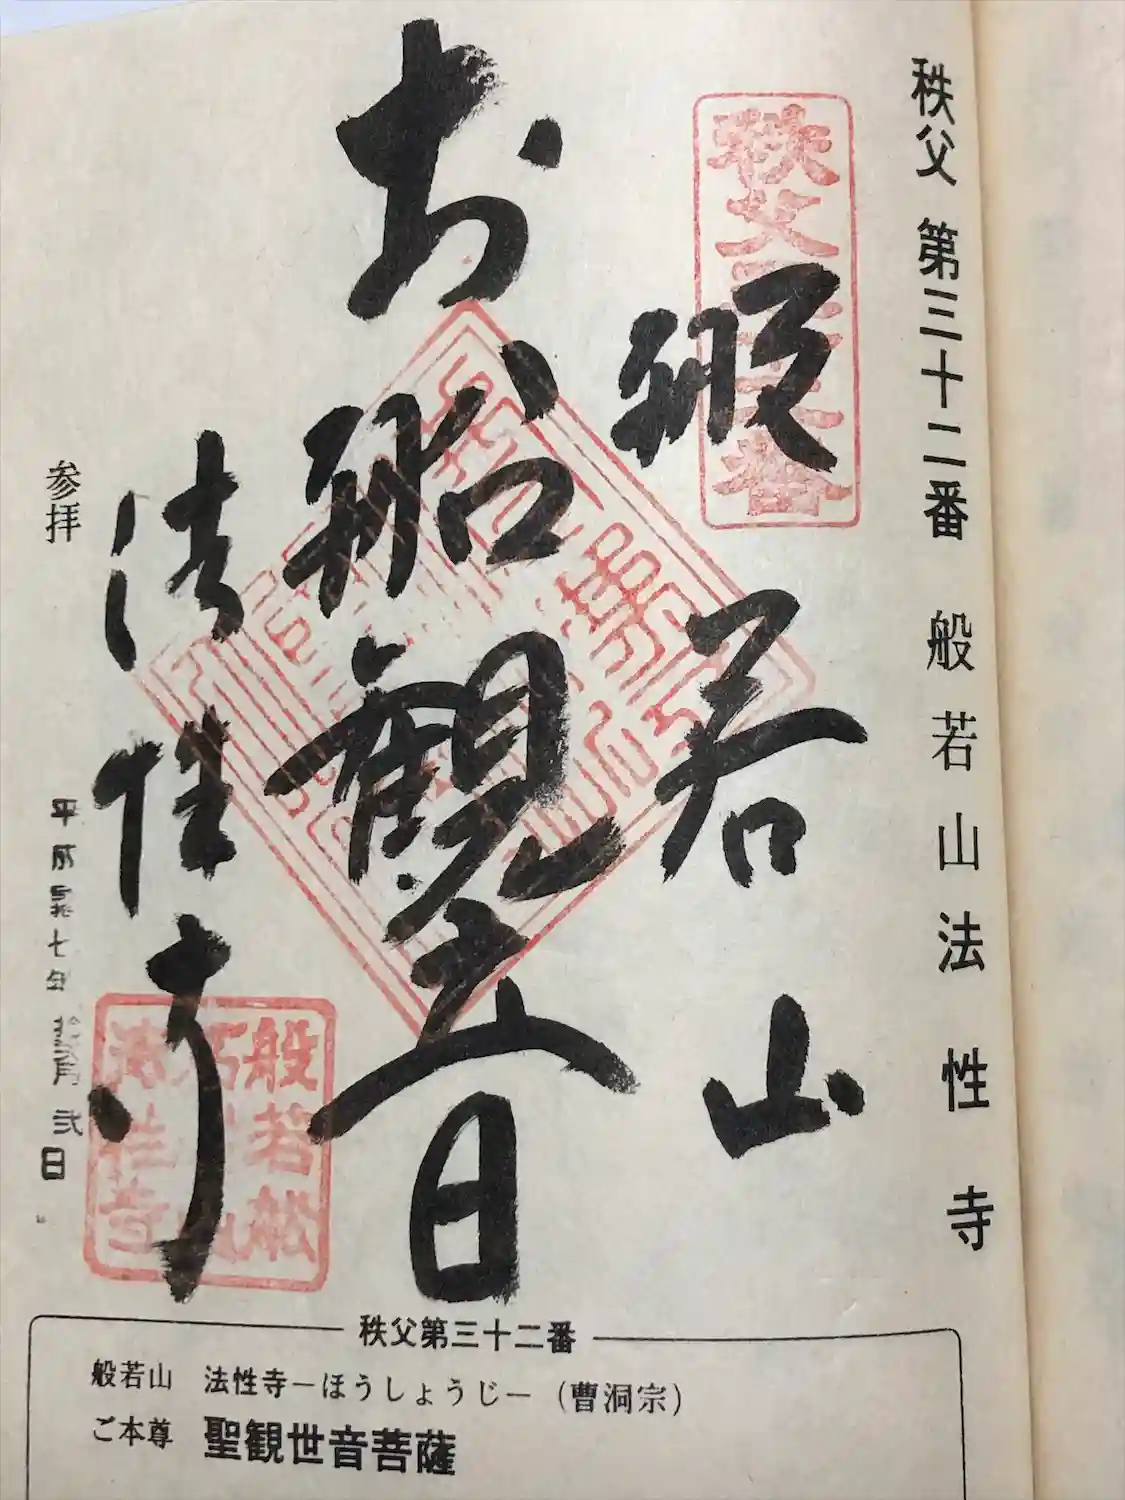 秩父 第三十二番 般若山法性寺
秩父三十二番
般若山
お船観音
法性寺
参拝
平成
七年
月 弐
日
般若船
法性寺
秩父第三十二番
般若山 法性寺―ほうしょうじ―(曹洞宗)
ご本尊 聖観世音菩薩